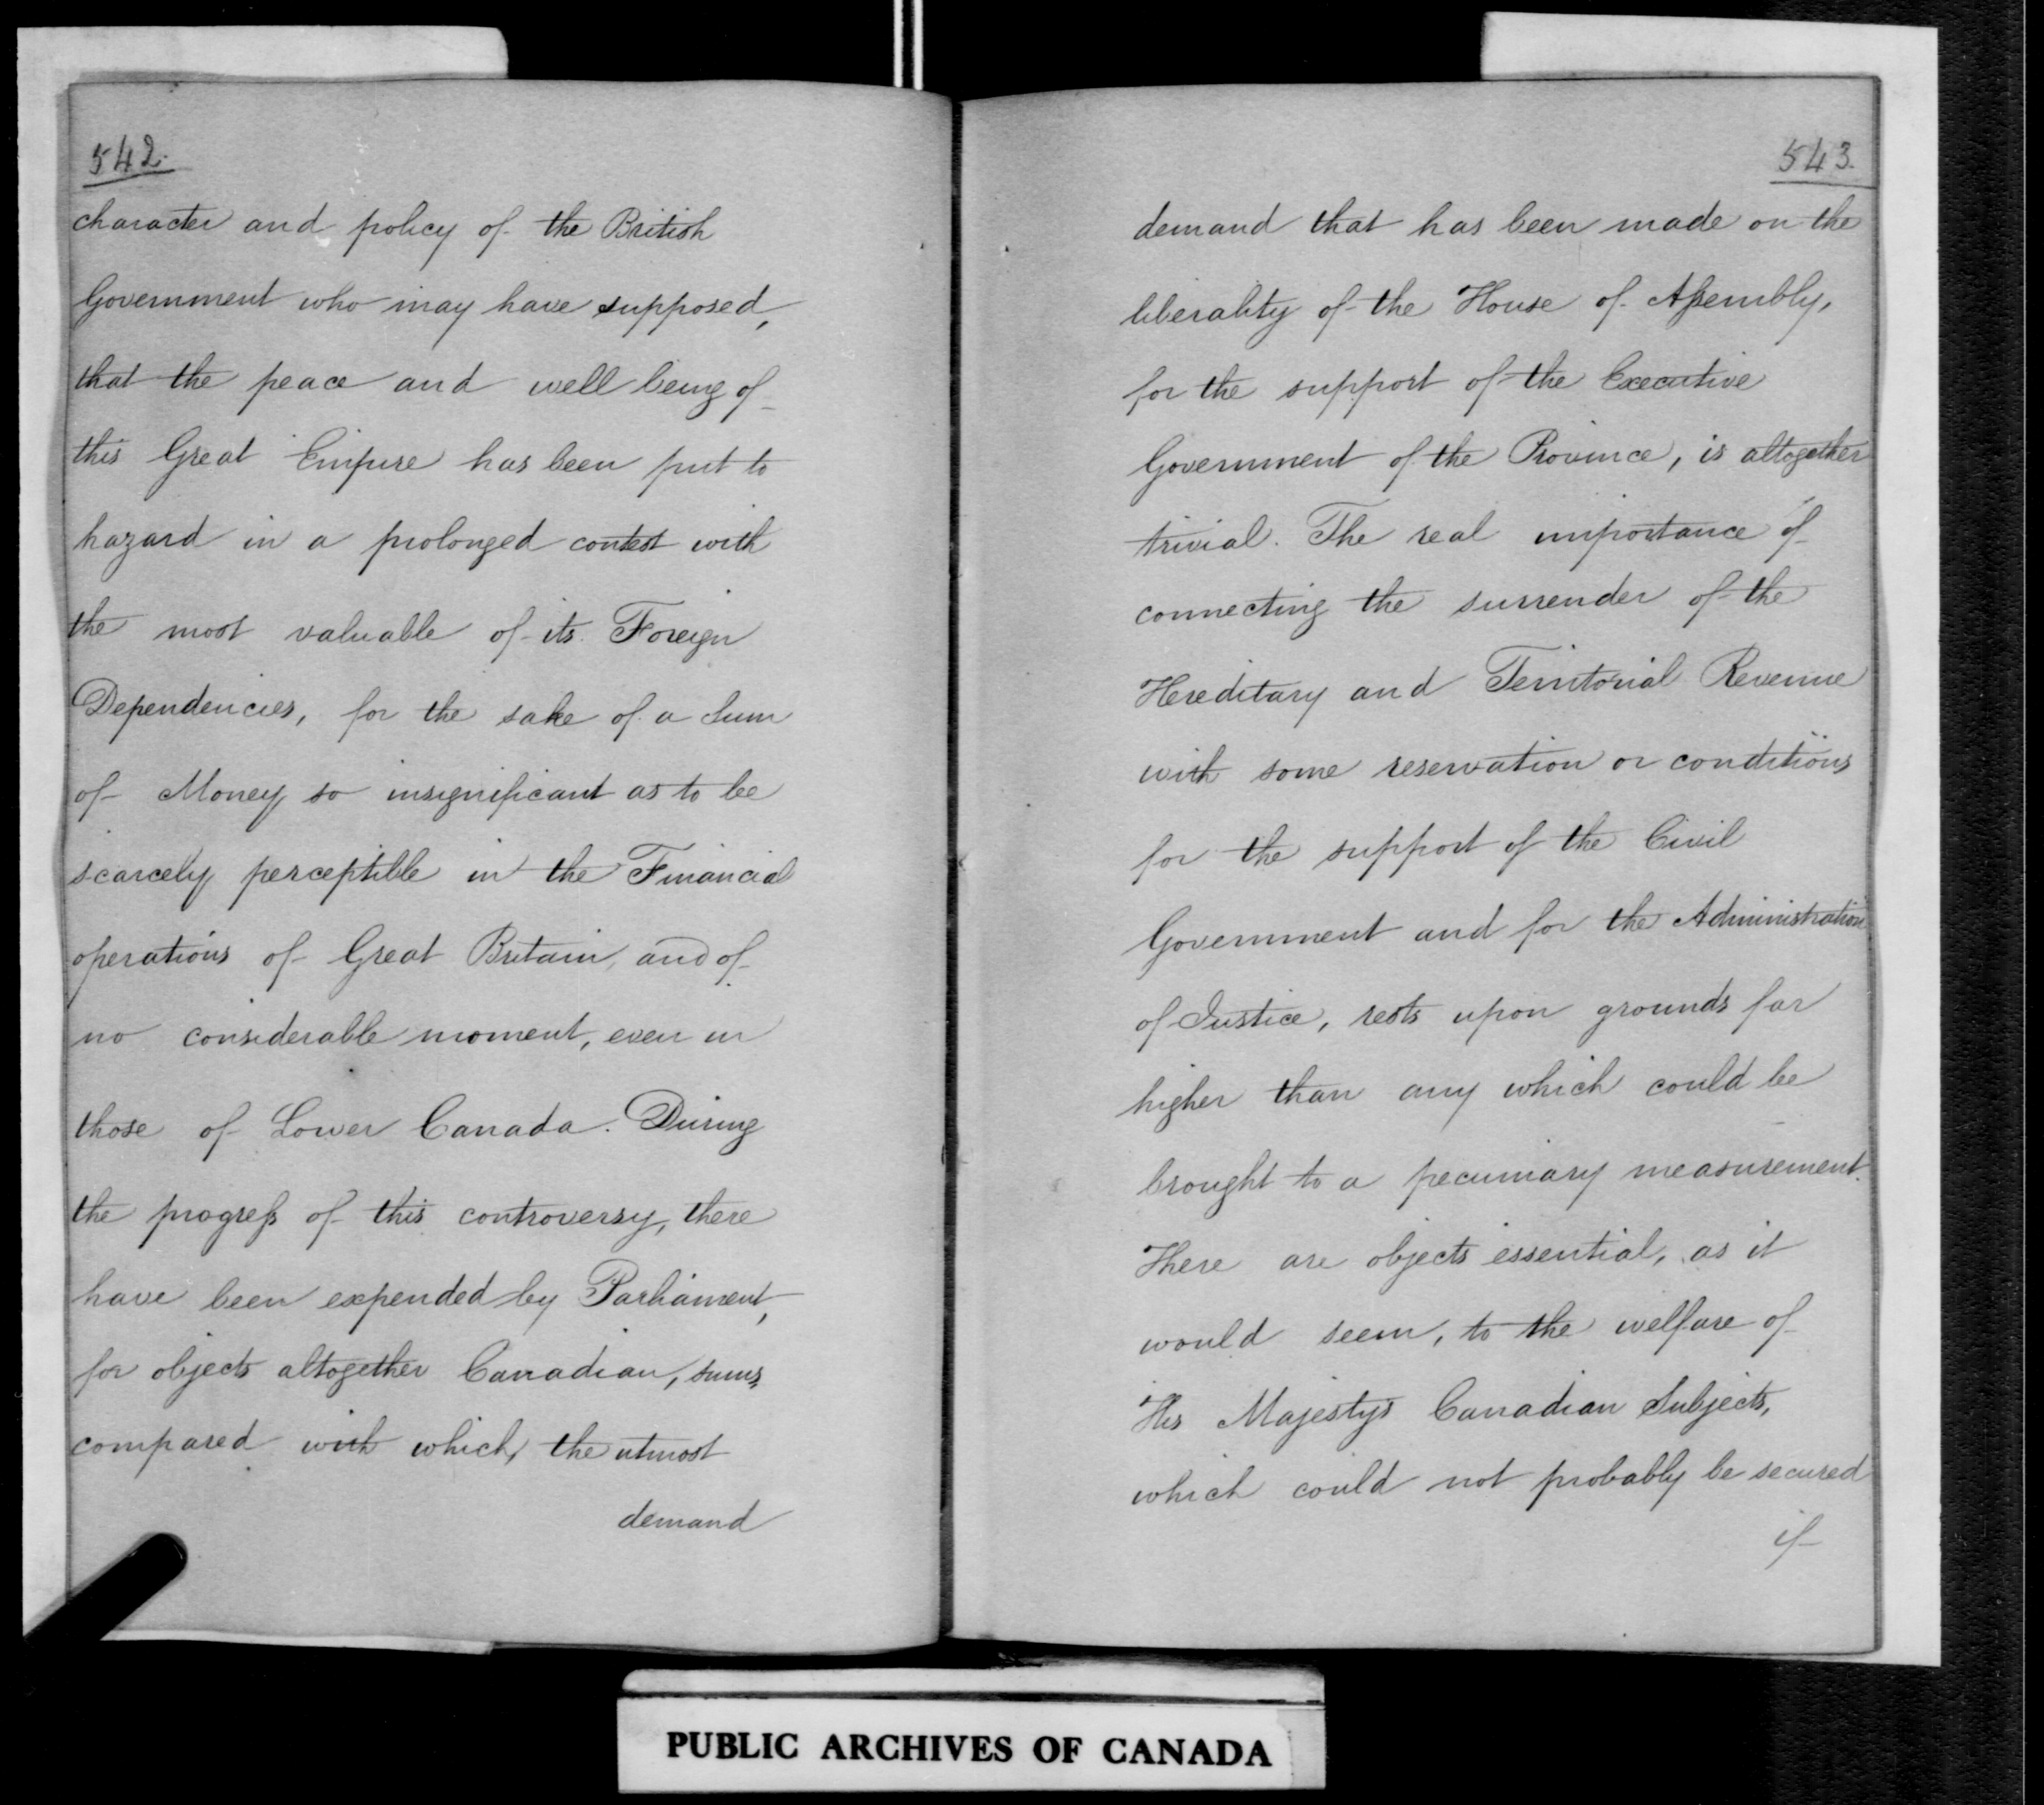 542.
character and policy of the British
Government who may have supposed,
that the peace and well being of
this Great Empire has been put to
hazard in a prolonged contest with
the most valuable of its Foreign
Dependencies, for the sake of a Sum
of Money so insignificant as to be
scarcely perceptible in the Financial
operations of Great Britain, and of
no considerable moment, even in
those of Lower Canada. During
the progress of this controversy, there
have been expended by Parliament,
for objects altogether Canadian, sums,
compared with which, the utmost
demand
543.
demand that has been made on the
liberality of the House of Assembly,
for the support of the Executive
Government of the Province, is altogether
trivial. The real importance of
connecting the surrender of the
Hereditary and Territorial Revenue
with some reservation or conditions
for the support of the Civil
Government and for the Administration
of Justice, rests upon grounds far
higher than any which could be
brought to a pecuniary measurement.
There are objects essential, as it
would seem, to the welfare of
His Majesty's Canadian Subjects,
which could not probably be secured
if
PUBLIC ARCHIVES OF CANADA